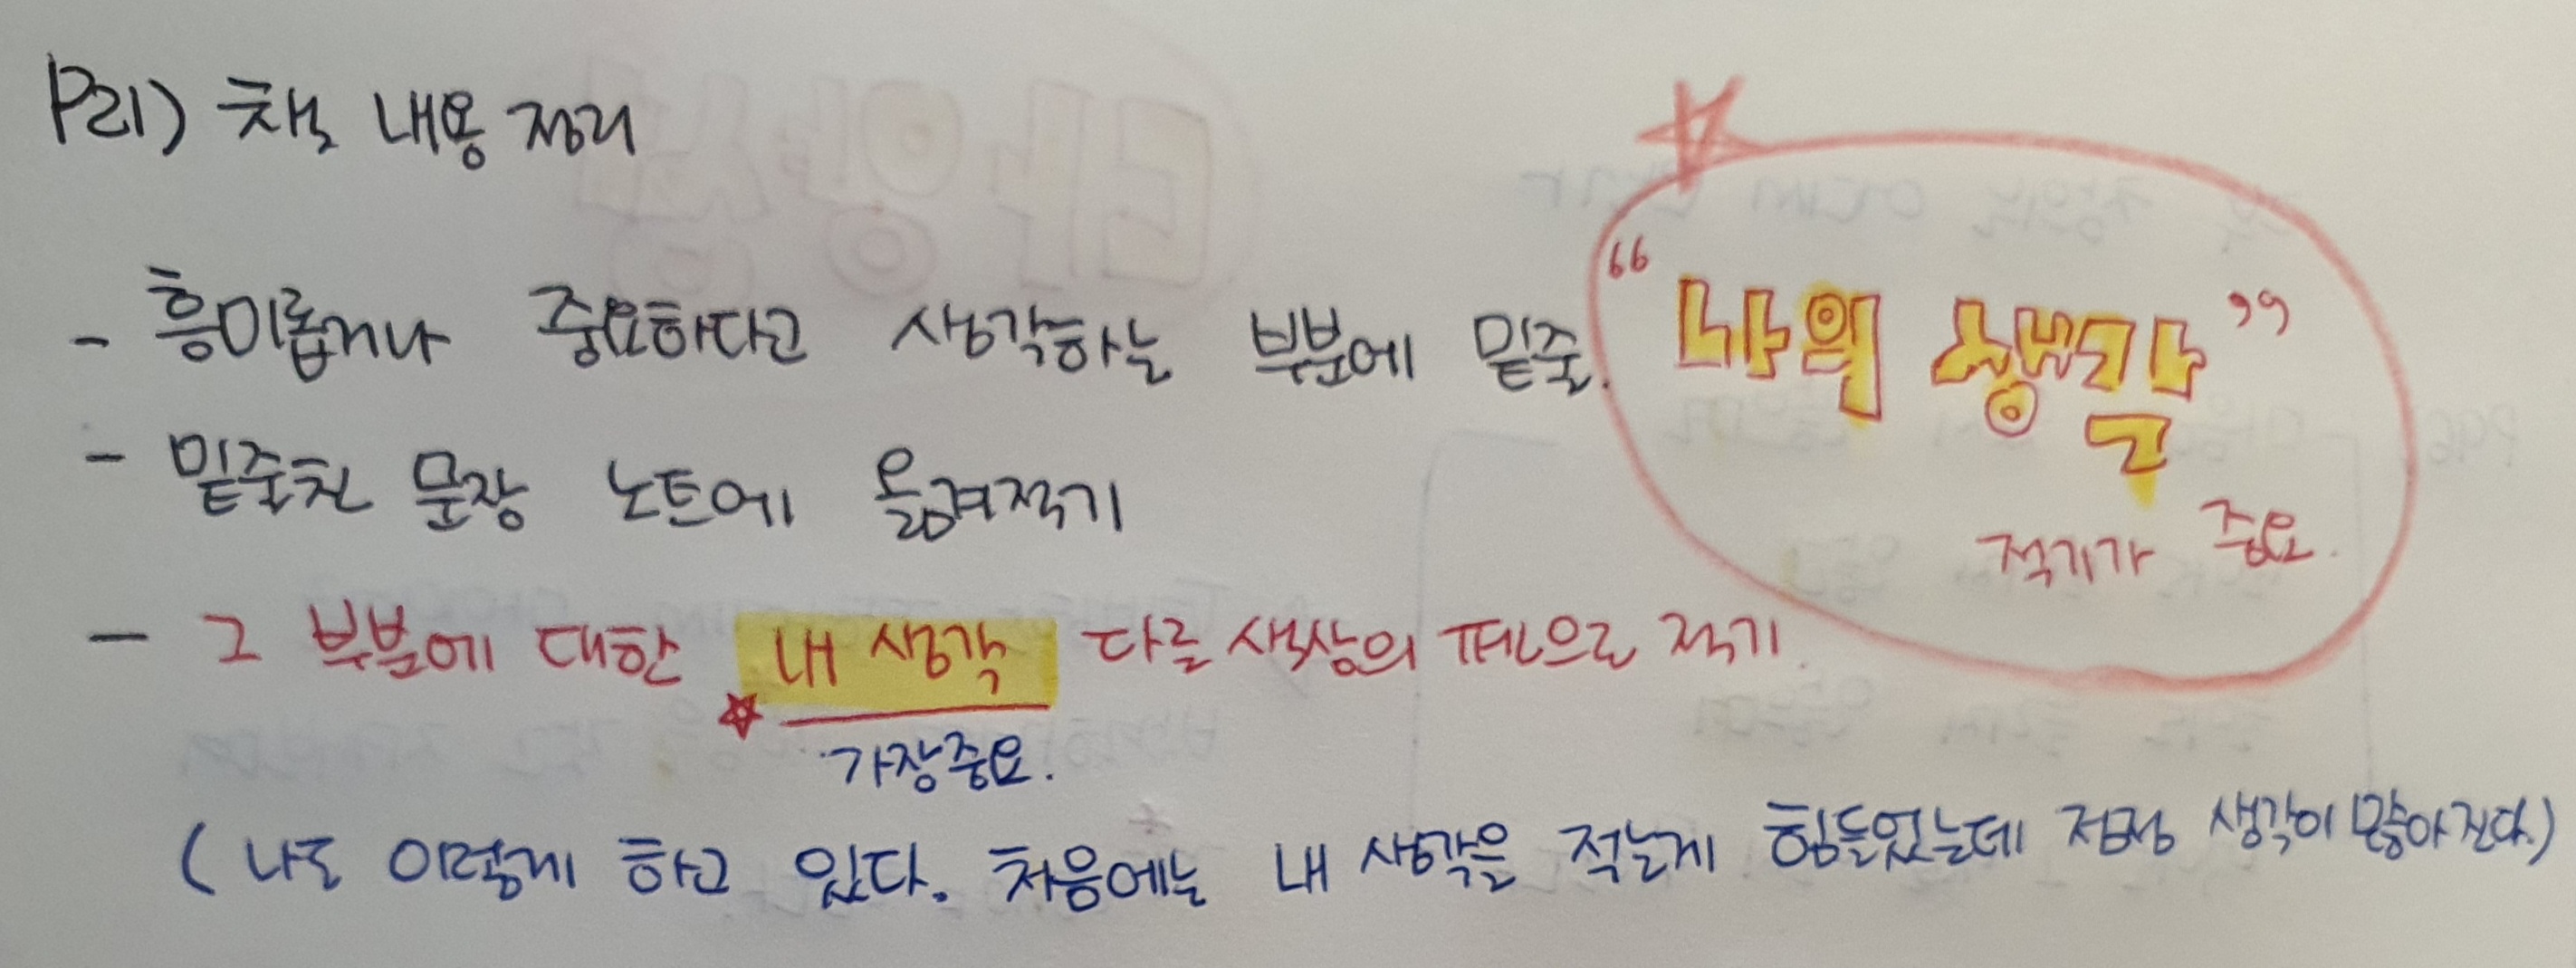 P21) 책 내용 정리
- 흥미롭거나 중요하다고 생각하는 부분에 밑줄.
- 밑줄친 문장 노트에 옮겨적기
- 그 부분에 대한 내 생각 다른 색상의 펜으로 적기.
가장중요.
(나도 이렇게 하고 있다. 처음에는 내 생각을 적는게 힘들었는데 점점 생각이 많아진다.)
“나의 생각”
적기가 중요.